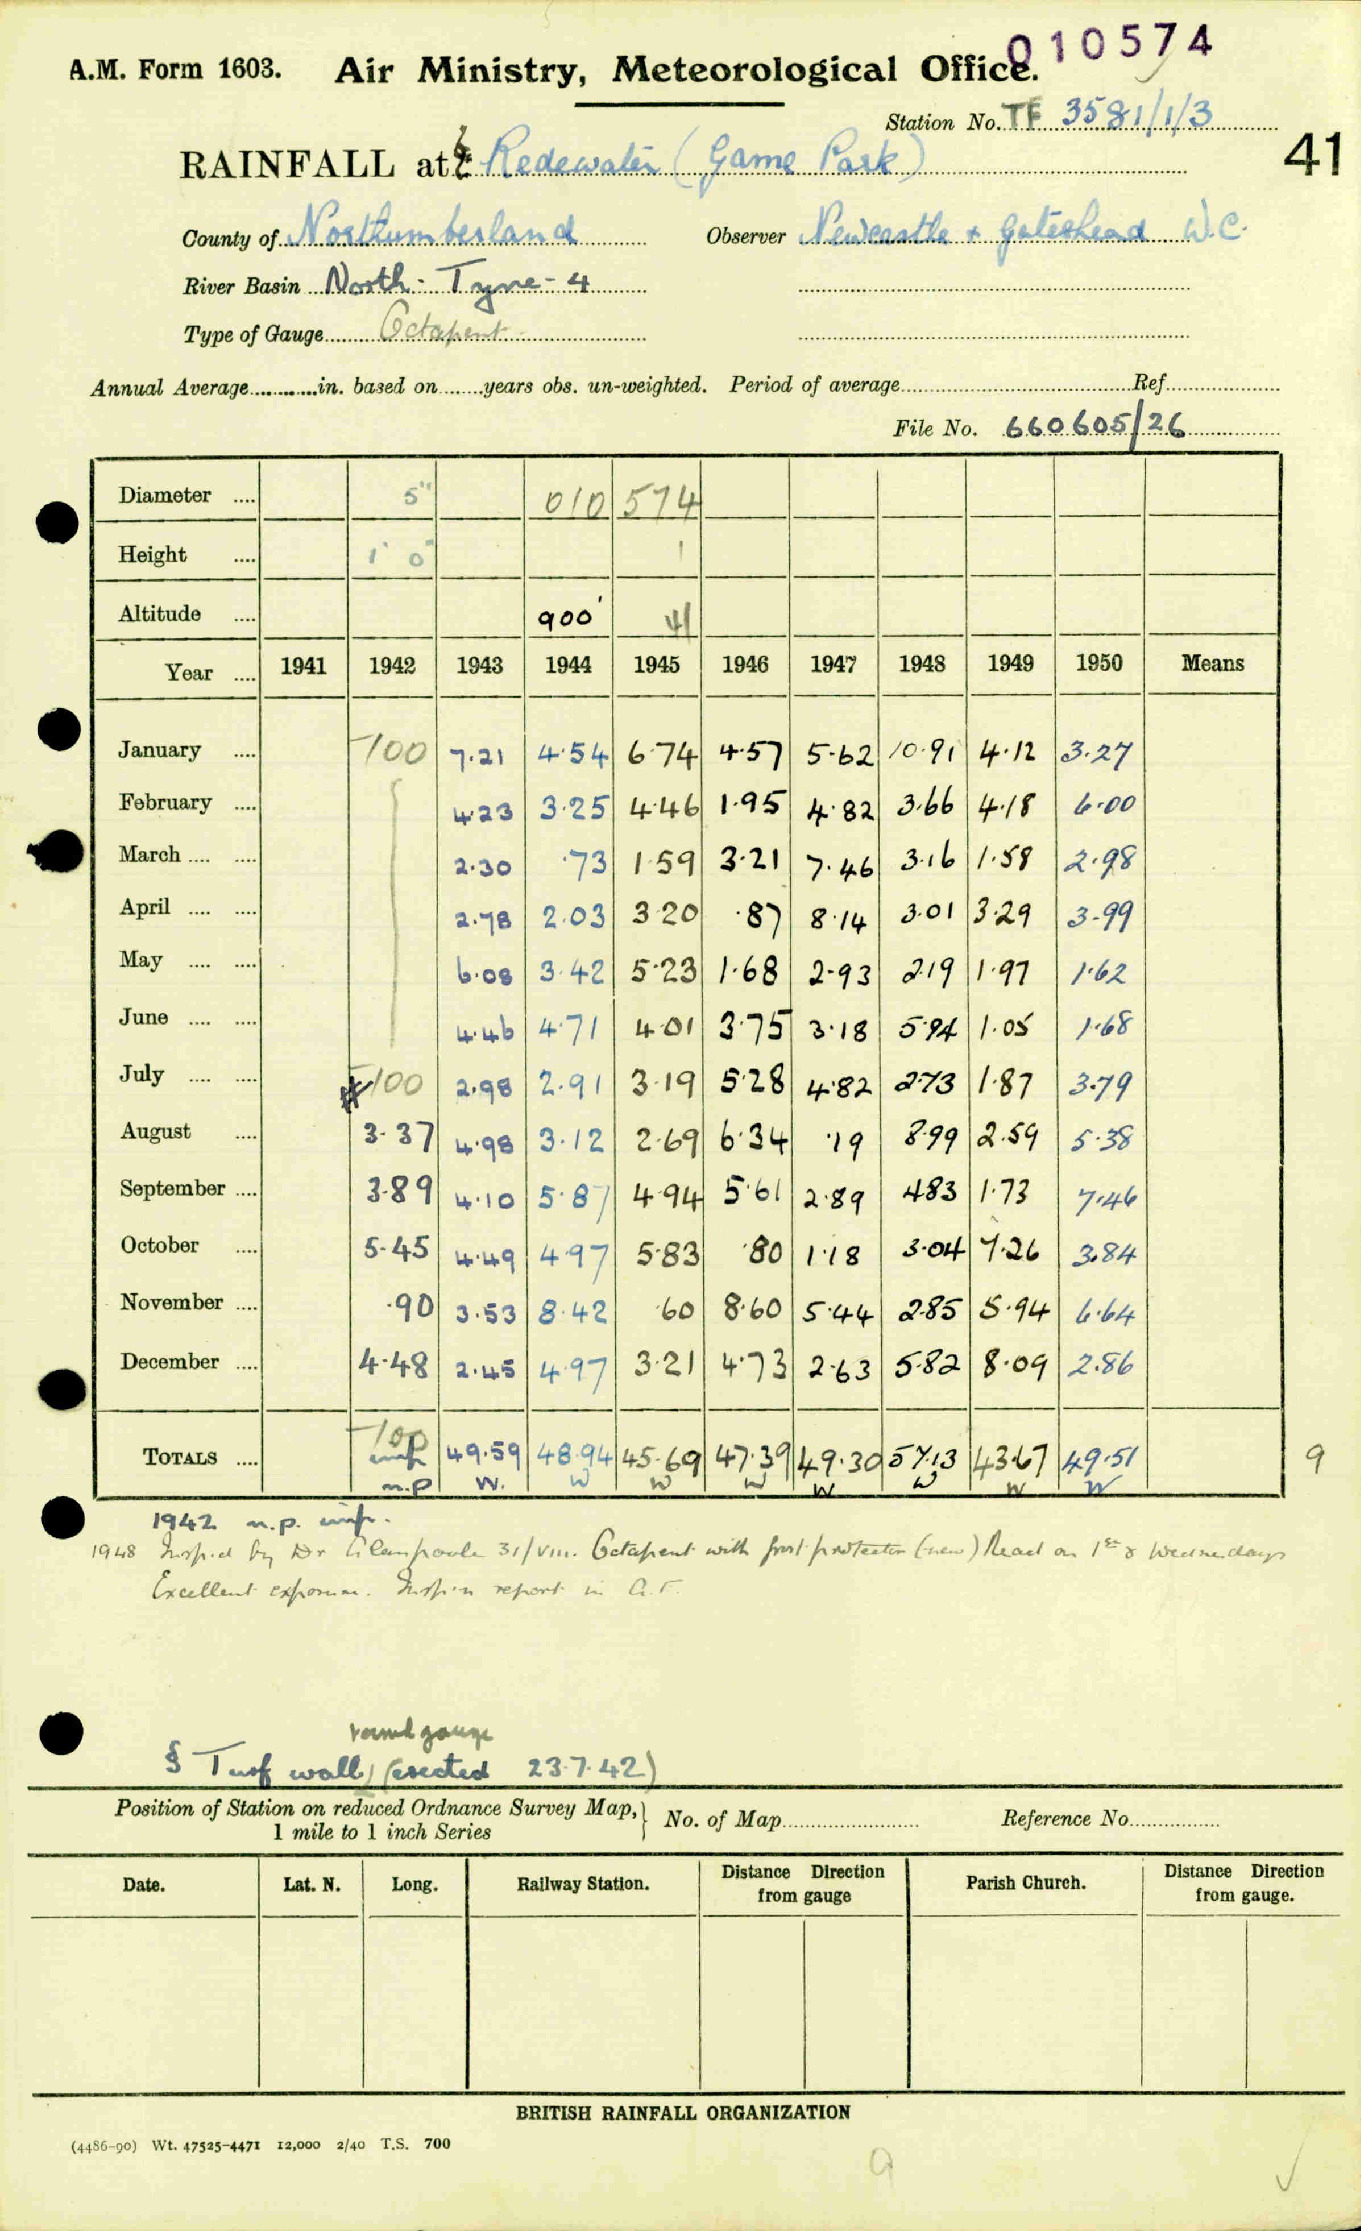 010574
A.M. Form 1603. Air Ministry, Meteorological Office.
Station No. TF 3581/1/3
41
RAINFALL at Redewater (Game Park)
County of Northumberland Observer Newcastle & Gateshead W.C.
River Basin North-Tyne-4
Type of Gauge Octapent
Annual Average in. based on years obs. un-weighted. Period of average Ref
File No. 660605/26
Diameter .... 5" 010 574
Height .... 1' 0" 1
Altitude .... 900' 41
Year .... 1941 1942 1943 1944 1945 1946 1947 1948 1949 1950 Means
January .... -100 7.21 4.54 6.74 4.57 5.62 10.91 4.12 3.27
February .... 4.23 3.25 4.46 1.95 4.82 3.66 4.18 6.00
March .... .... 2.30 .73 1.59 3.21 7.46 3.16 1.58 2.98
April .... .... 2.78 2.03 3.20 .87 8.14 3.01 3.29 3.99
May .... .... 6.08 3.42 5.23 1.68 2.93 2.19 1.97 1.62
June .... .... 4.46 4.71 4.01 3.75 3.18 5.94 1.05 1.68
July .... .... -100 2.98 2.91 3.19 5.28 4.82 2.73 1.87 3.79
August .... 3.37 4.98 3.12 2.69 6.34 .19 8.99 2.59 5.38
September .... 3.89 4.10 5.87 4.94 5.61 2.89 4.83 1.73 7.46
October .... 5.45 4.49 4.97 5.83 .80 1.18 3.04 7.26 3.84
November .... .90 3.53 8.42 .60 8.60 5.44 2.85 5.94 6.64
December .... 4.48 2.45 4.97 3.21 4.73 2.63 5.82 8.09 2.86
-100
TOTALS .... imp 49.59 48.94 45.69 47.39 49.30 57.13 43.67 49.51 9
n.p W. W W W W W W W
1942 n.p. imp.
1948 Insp.d by Dr 31/VIII. Octapent with frost protector (new) Read on 1st & Wednesdays
Excellent exposure. Insp.n report in
round gauge
§ Turf wall (erected 23.7.42)
Position of Station on reduced Ordnance Survey Map, No. of Map Reference No.
1 mile to 1 inch Series
Date. Lat. N. Long. Railway Station. Distance Direction from gauge Parish Church. Distance Direction from gauge.
BRITISH RAINFALL ORGANIZATION
(4486-90) Wt. 47525-4471 12,000 2/40 T.S. 700